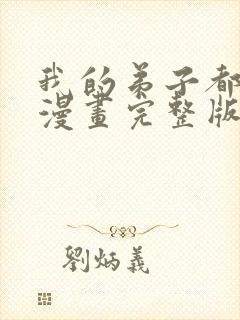 我的弟子都
漫畫完整版
劉炳義